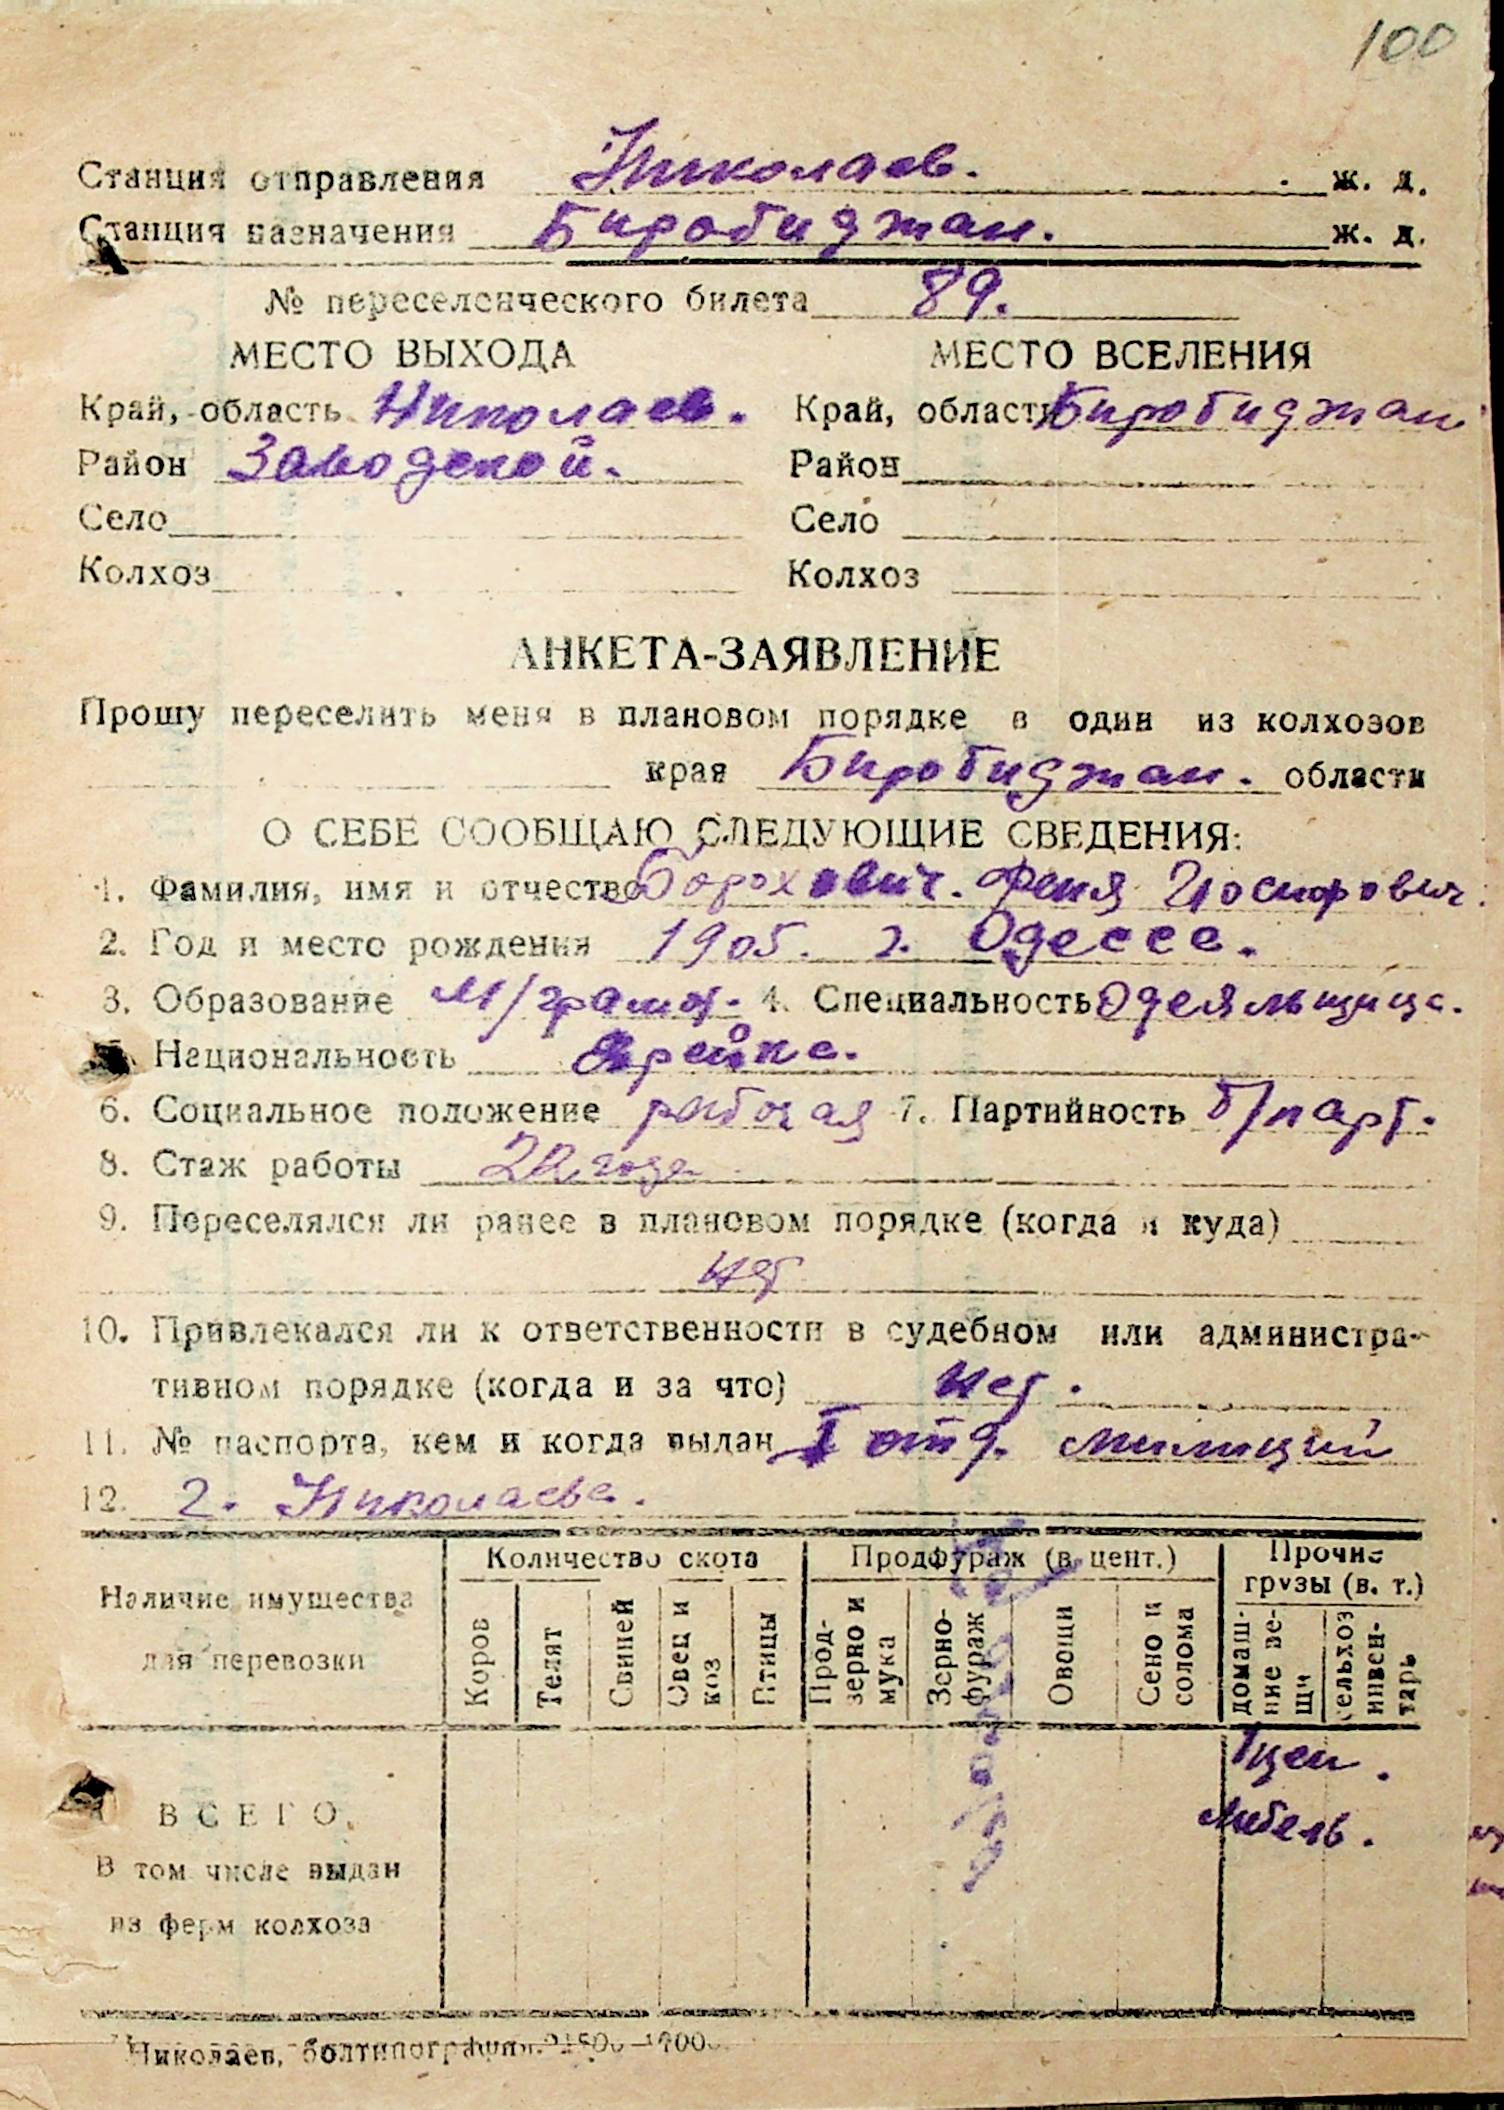 100
Станция отправления Николаев. ж. д.
Станция назначения Биробиджан. ж. д.
№ переселенческого билета 89.
МЕСТО ВЫХОДА МЕСТО ВСЕЛЕНИЯ
Край, область Николаев. Край, область Биробиджан
Район Заводской. Район
Село Село
Колхоз Колхоз
АНКЕТА-ЗАЯВЛЕНИЕ
Прошу переселить меня в плановом порядке в один из колхозов
края Биробиджан. области
О СЕБЕ СООБЩАЮ СЛЕДУЮЩИЕ СВЕДЕНИЯ:
1. Фамилия, имя и отчество Борохович. Феня Иосифович.
2. Год и место рождения 1905. г. Одессе.
3. Образование м/грамот. 4. Специальность Одеяльщица.
Национальность Еврейка.
6. Социальное положение рабочая 7. Партийность б/парт.
8. Стаж работы 22 года
9. Переселялся ли ранее в плановом порядке (когда и куда)
нет
10. Привлекался ли к ответственности в судебном или администра-
тивном порядке (когда и за что) нет.
11. № паспорта, кем и когда выдан I отд. милиций
12. г. Николаева.
Наличие имущества для перевозки
Количество скота
Продфураж (в цент.)
Прочие грузы (в. т.)
Коров
Телят
Свиней
Овец и коз
Птицы
Прод-зерно и мука
Зерно-фураж
Овощи
Сено и солома
домаш-ние ве-щи
сельхоз инвен-тарь
1 цен.
мебель.
ВСЕГО.
В том числе выдан
из ферм колхоза
Николаев, болтипография